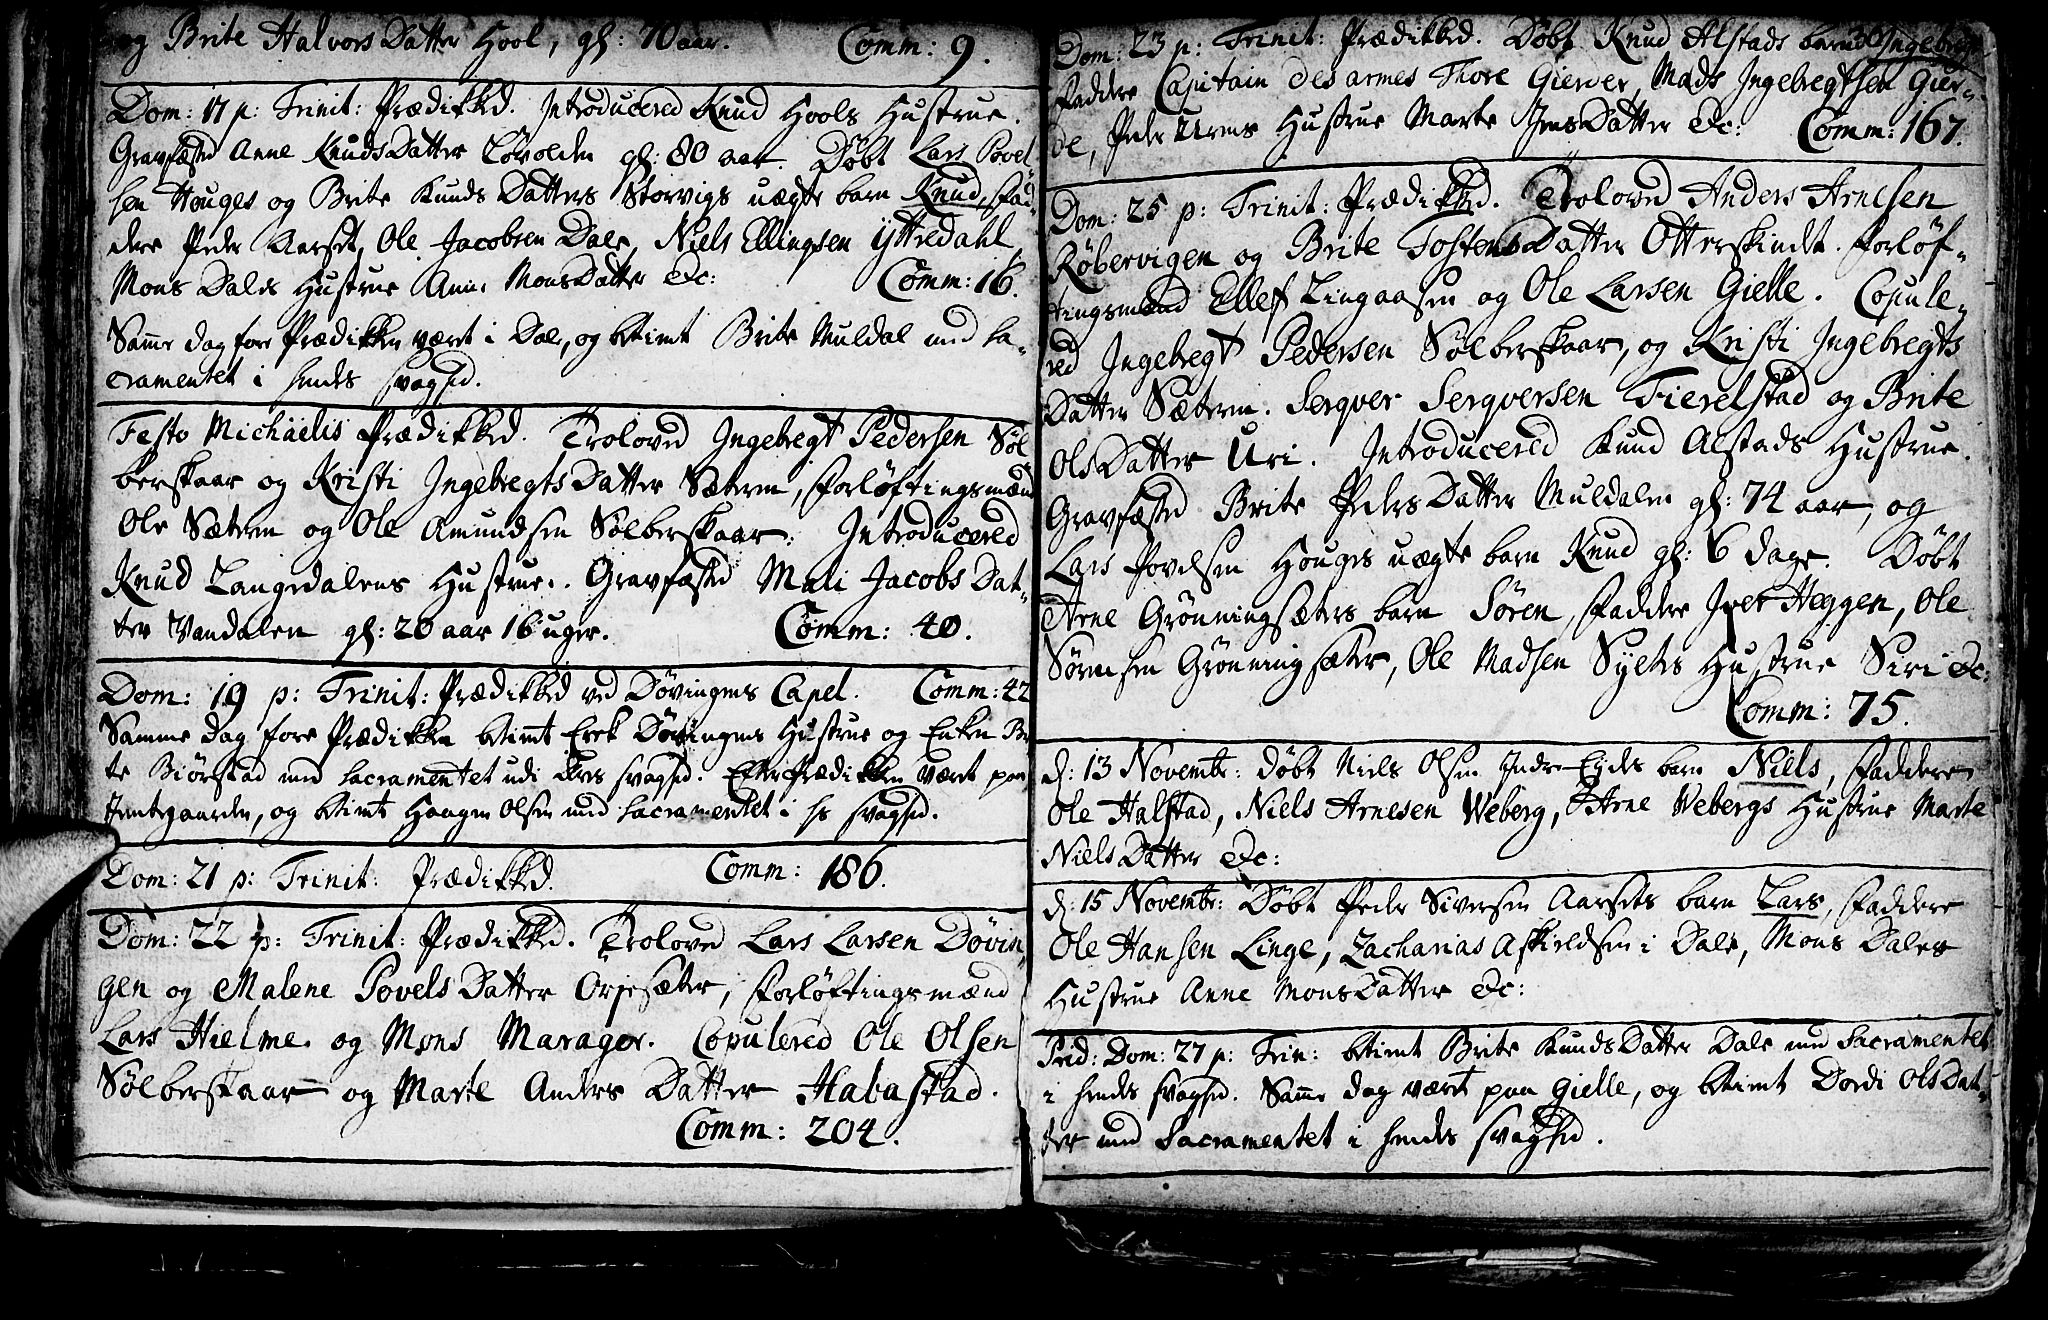 og Brite Halvors Datter Hool, gl: 70 aar. Comm: 9.
Dom: 17 p: Trinit: Prædikked. Introducered Knud Hools Hustrue.
Gravfæsted Anne Knuds Datter Løvolden gl: 80 aar. Døbt Lars Povel-
sen Houges og Brite Knuds Datters Storvigs uægte barn Knud, Fad-
dere Peder Aarset, Ole Jacobsen Dale, Niels Ellingsen Yttredahl,
Mons Dales Hustrue Anne MonsDatter &c: Comm: 16.
Samme dag fore Prædikken været i Dale, og betient Brite Muldal med Sa-
cramentet i hendes svaghed.
Festo Michaëlis Prædikked. Troloved Ingebregt Pedersen Søl
berskaar og Kristi Ingebregts Datter Sæteren, Forløftingsmænd
Ole Sæteren og Ole Amundsen Sølberskaar. Introducered
Knud Langedalens Hustrue. Gravfæsted Mali Jacobs Dat-
ter Vandalen gl: 20 aar 16 uger. Comm: 40.
Dom: 19 p: Trinit: Prædikked ved Døvingens Capel. Comm: 42
Samme dag fore Prædikken betient Erek Døvingens Hustrue og Enken Bri
te Biørstad med Sacramentet udi deres svaghed. Efter Prædikken været paa
gaarden, og betient Haagen Olsen med Sacramentet i hs svaghed.
Dom: 21 p: Trinit: Prædikked. Comm: 186.
Dom: 22 p: Trinit: Prædikked. Troloved Lars Larsen Døvin-
gen og Malene Povels Datter Orjesæter, Forløftingsmænd
Lars Hielme og Mons Marager. Copulered Ole Olsen
Sølberskaar og Marte Anders Datter Habastad.
Comm: 204.
36
Dom: 23 p: Trinit: Prædikked. Døbt Knud Alstads barn Ingebregt
Faddere Capitain des armes Thore Gierder, Mads Ingebregtsen Gier-
de, Peder Urens Hustrue Marte JensDatter &c: Comm: 167.
Dom: 25 p: Trinit: Prædikked. Troloved Anders Arnesen
Røbervigen og Brite Tostens Datter Otterskindt. Forløf-
tingsmænd Ellef Lingaasen og Ole Larsen Gielle. Copule-
red Ingebregt Pedersen Sølberskaar, og Kristi Ingebregts
Datter Sæteren. Serqver Serqversen Fierelstad og Brite
OlsDatter Uri. Introducered Knud Alstads Hustrue.
Gravfæsted Brite Peders Datter Muldalen gl: 74 aar, og
Lars Povelsen Houges uægte barn Knud gl: 6 dage. Døbt
Arne Grønningsæters barn Søren, Faddere Iver Heggen, Ole
Sørensen Grønningsæter, Ole Madsen Syltes Hustrue Siri &c:
Comm: 75.
d: 13 Novembr: døbt Niels Olsen Indre-Eides barn Niels, Faddere
Ole Halstad, Niels Arnesen Weberg, Arne Webergs Hustrue Marte
Niels Datter &c:
d: 15 Novembr: Døbt Peder Siversen Aarsets barn Lars, Faddere
Ole Hansen Linge, Zacharias Askieldsen i Dale, Mons Dales
Hustrue Anne MonsDatter &c:
Prid: Dom: 27 p: Trin: betient Brite KnudsDatter Dale med Sacramentet
i hendes svaghed. Samme dag været paa Gielle, og betient Dordi OlsDat-
ter med Sacramentet i hendes svaghed.